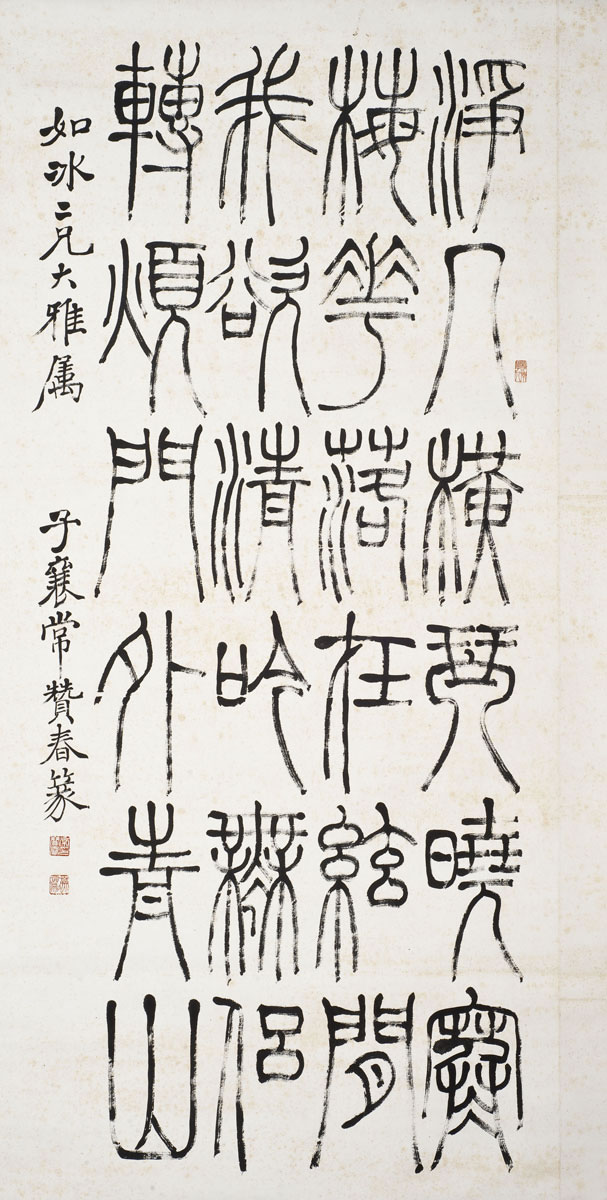 淨几橫琴曉寒
梅花落在絃間
我欲清吟無侶
轉煩門外青山
如冰二兄大雅属
子襄常贊春篆